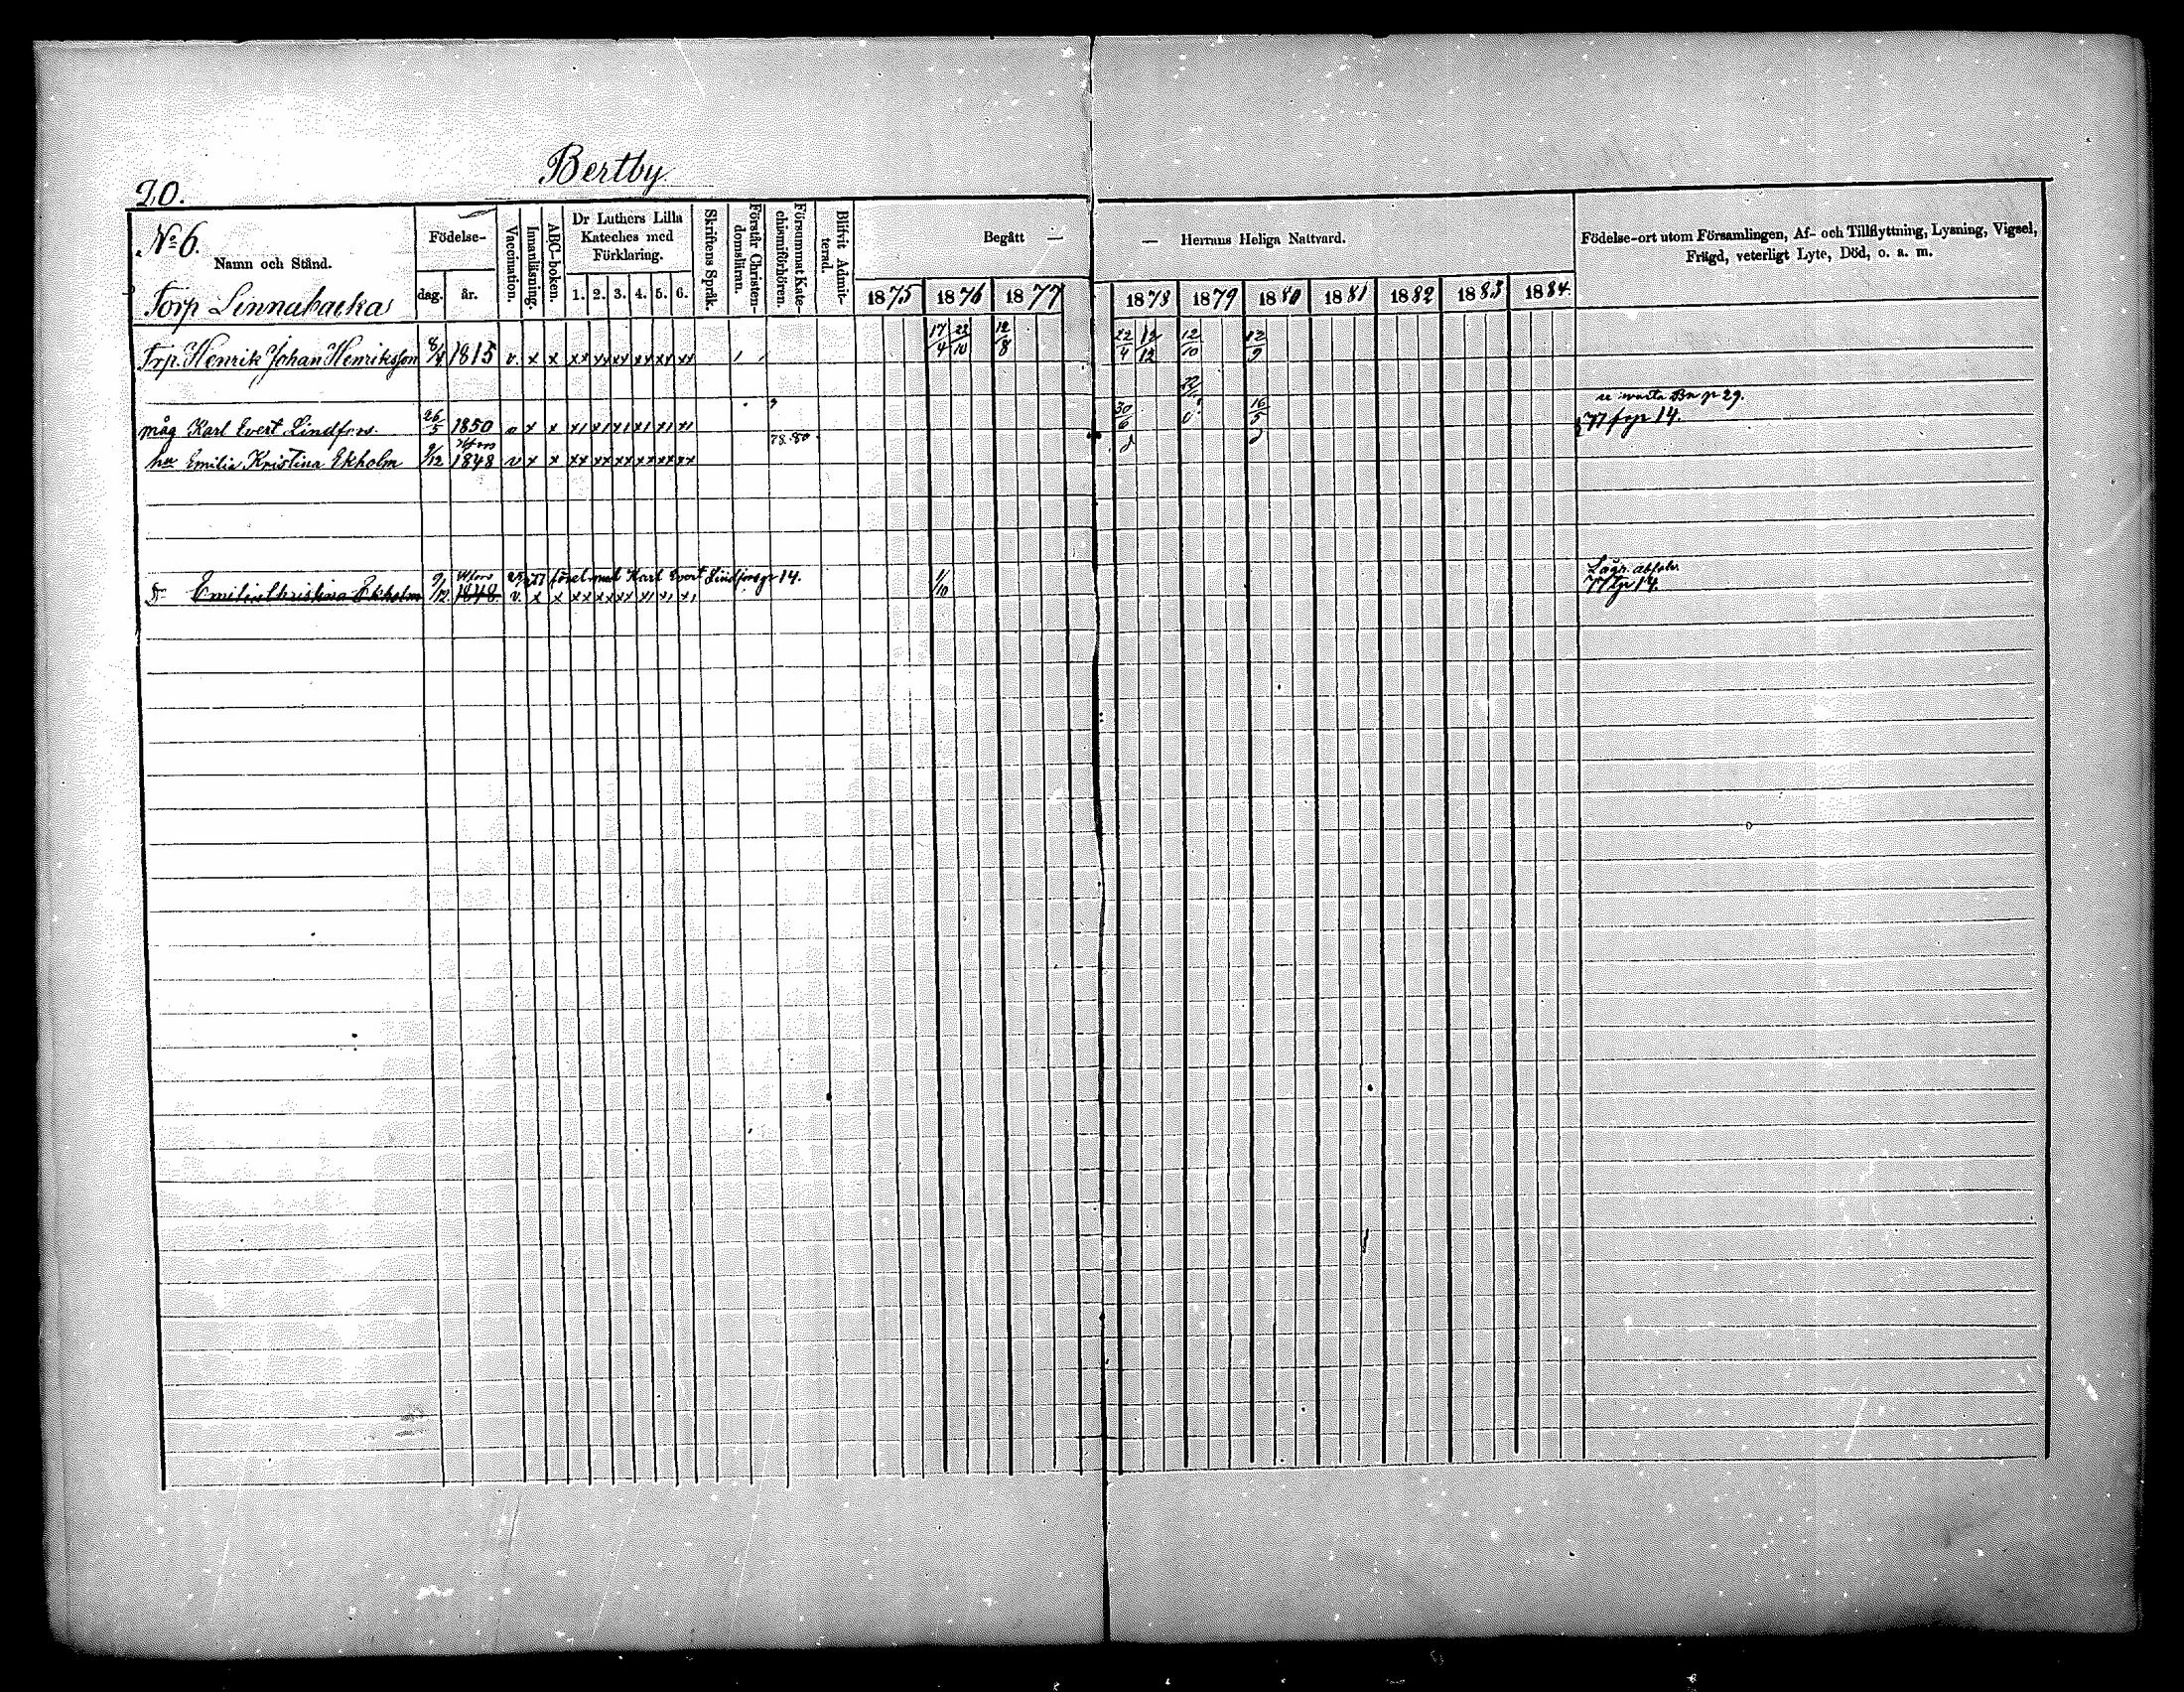 Bertby
20.
No 6.
Namn och Stånd.
Födelse-
dag. år.
Vaccination.
Innanläsning.
ABC-boken.
Dr Luthers Lilla
Kateches med
Förklaring.
1. 2. 3. 4. 5. 6.
Skriftens Språk.
Förstår Christen-
domsläran.
Försummat Kate-
chismiförhören.
Blifvit Admit-
terad.
Begått —
— Herrans Heliga Nattvard.
1875 1876 1877 1878 1879 1880 1881 1882 1883 1884.
Födelse-ort utom Församlingen, Af- och Tillflyttning, Lysning, Vigsel,
Frägd, veterligt Lyte, Död, o. a. m.
Torp Linnabacka
Trp. Henrik Johan Henriksson 8/4 1815 v. x x xx xx xx xx xx xx 17/4 22/10 12/8 22/4 12/12 12/10 12/9
måg Karl Evert Lindfors 26/5 1850 v x x x1 x1 x1 x1 x1 x1 30/6 16/5 p 29.
77 f p 14.
78. 80.
hu Emilia Kristina Ekholm 9/12 1848 v x x xx xx xx xx xx xx
77 med Karl Evert Lindfors p 14.
Emilia Christina Ekholm 9/12 1848. v. x x xx xx xx x1 x1 x1 1/10
77 f p 14.